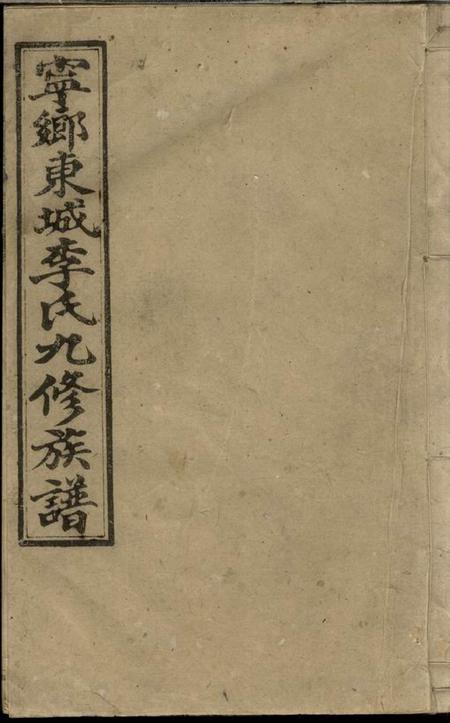 寧鄉東城李氏九修族譜